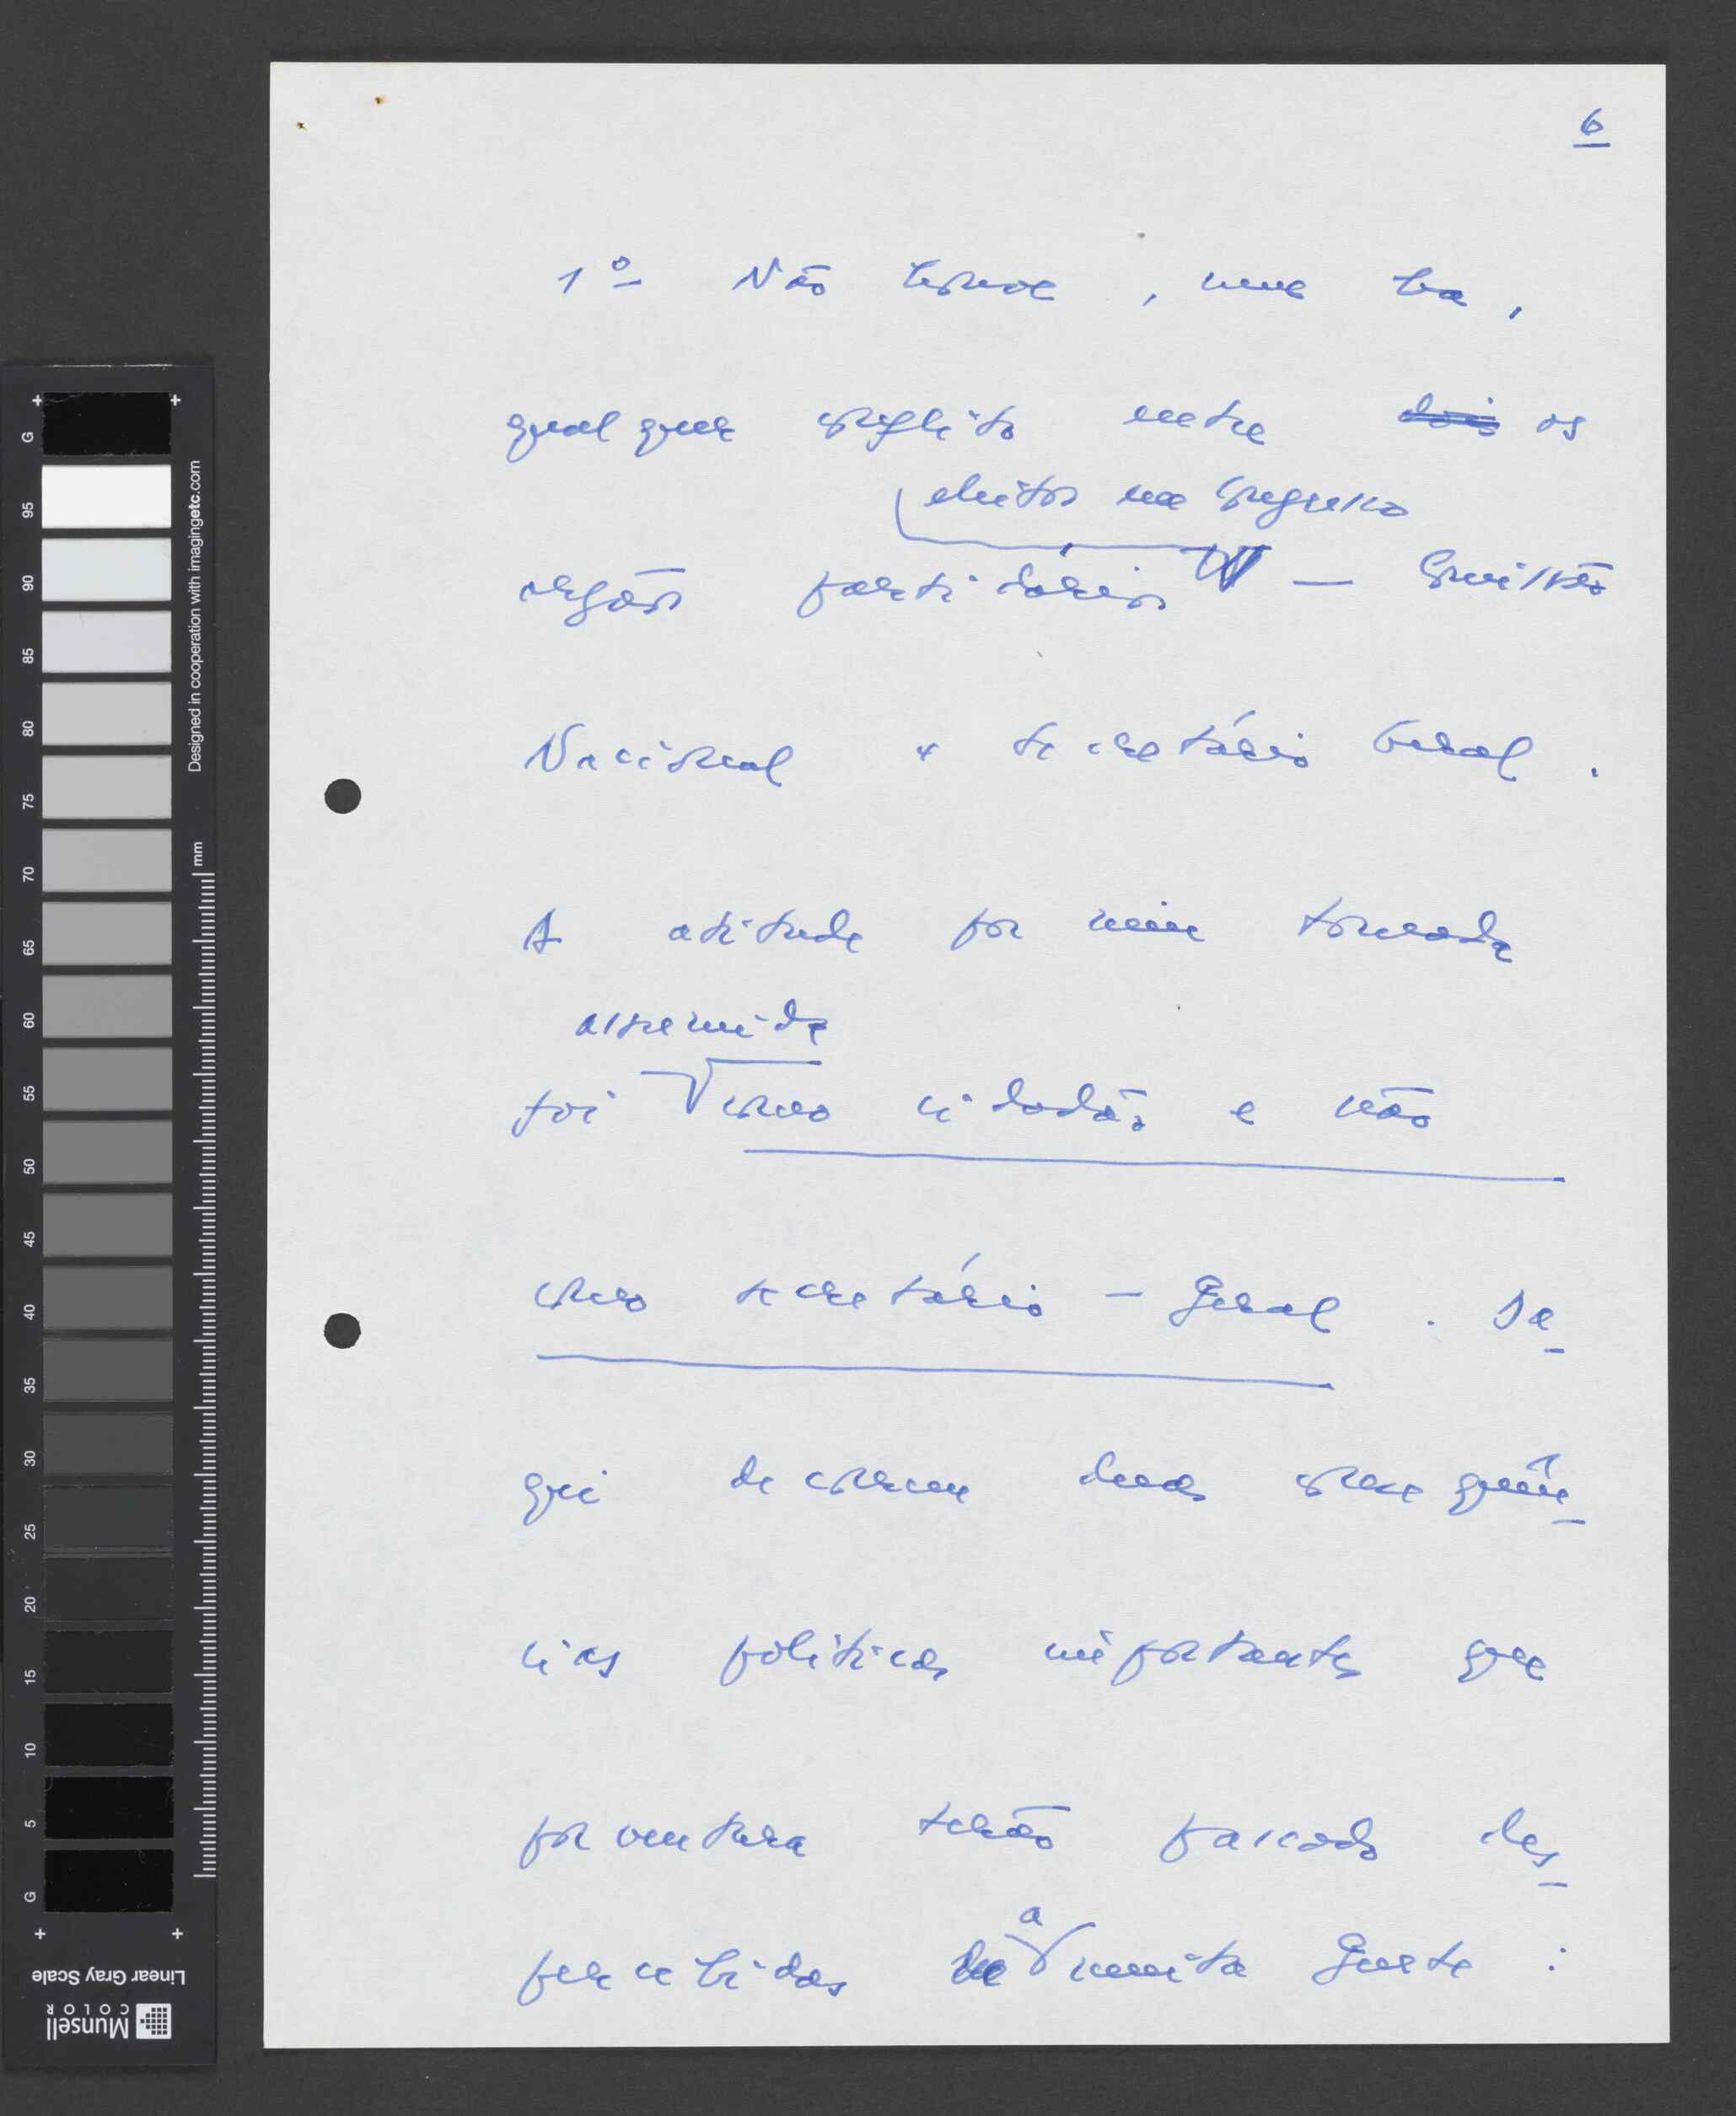 6
1º Não houve, nem há,
qualquer conflito entre dois os
eleitos no Congresso
orgãos partidários — Comissão
Nacional e Secretário Geral.
A atitude por mim tomada
assumida
foi como cidadão e não
como secretário-Geral. Da
qui decorrem duas consequên
cias políticas importantes que
porventura terão passado des
percebidas a muita gente:
G
95
90
85
80
75
70
65
60
55
50
45
40
35
30
25
20
15
10
5
G
Designed in cooperation with imagingetc.com
mm
Linear Gray Scale
Munsell
COLOR